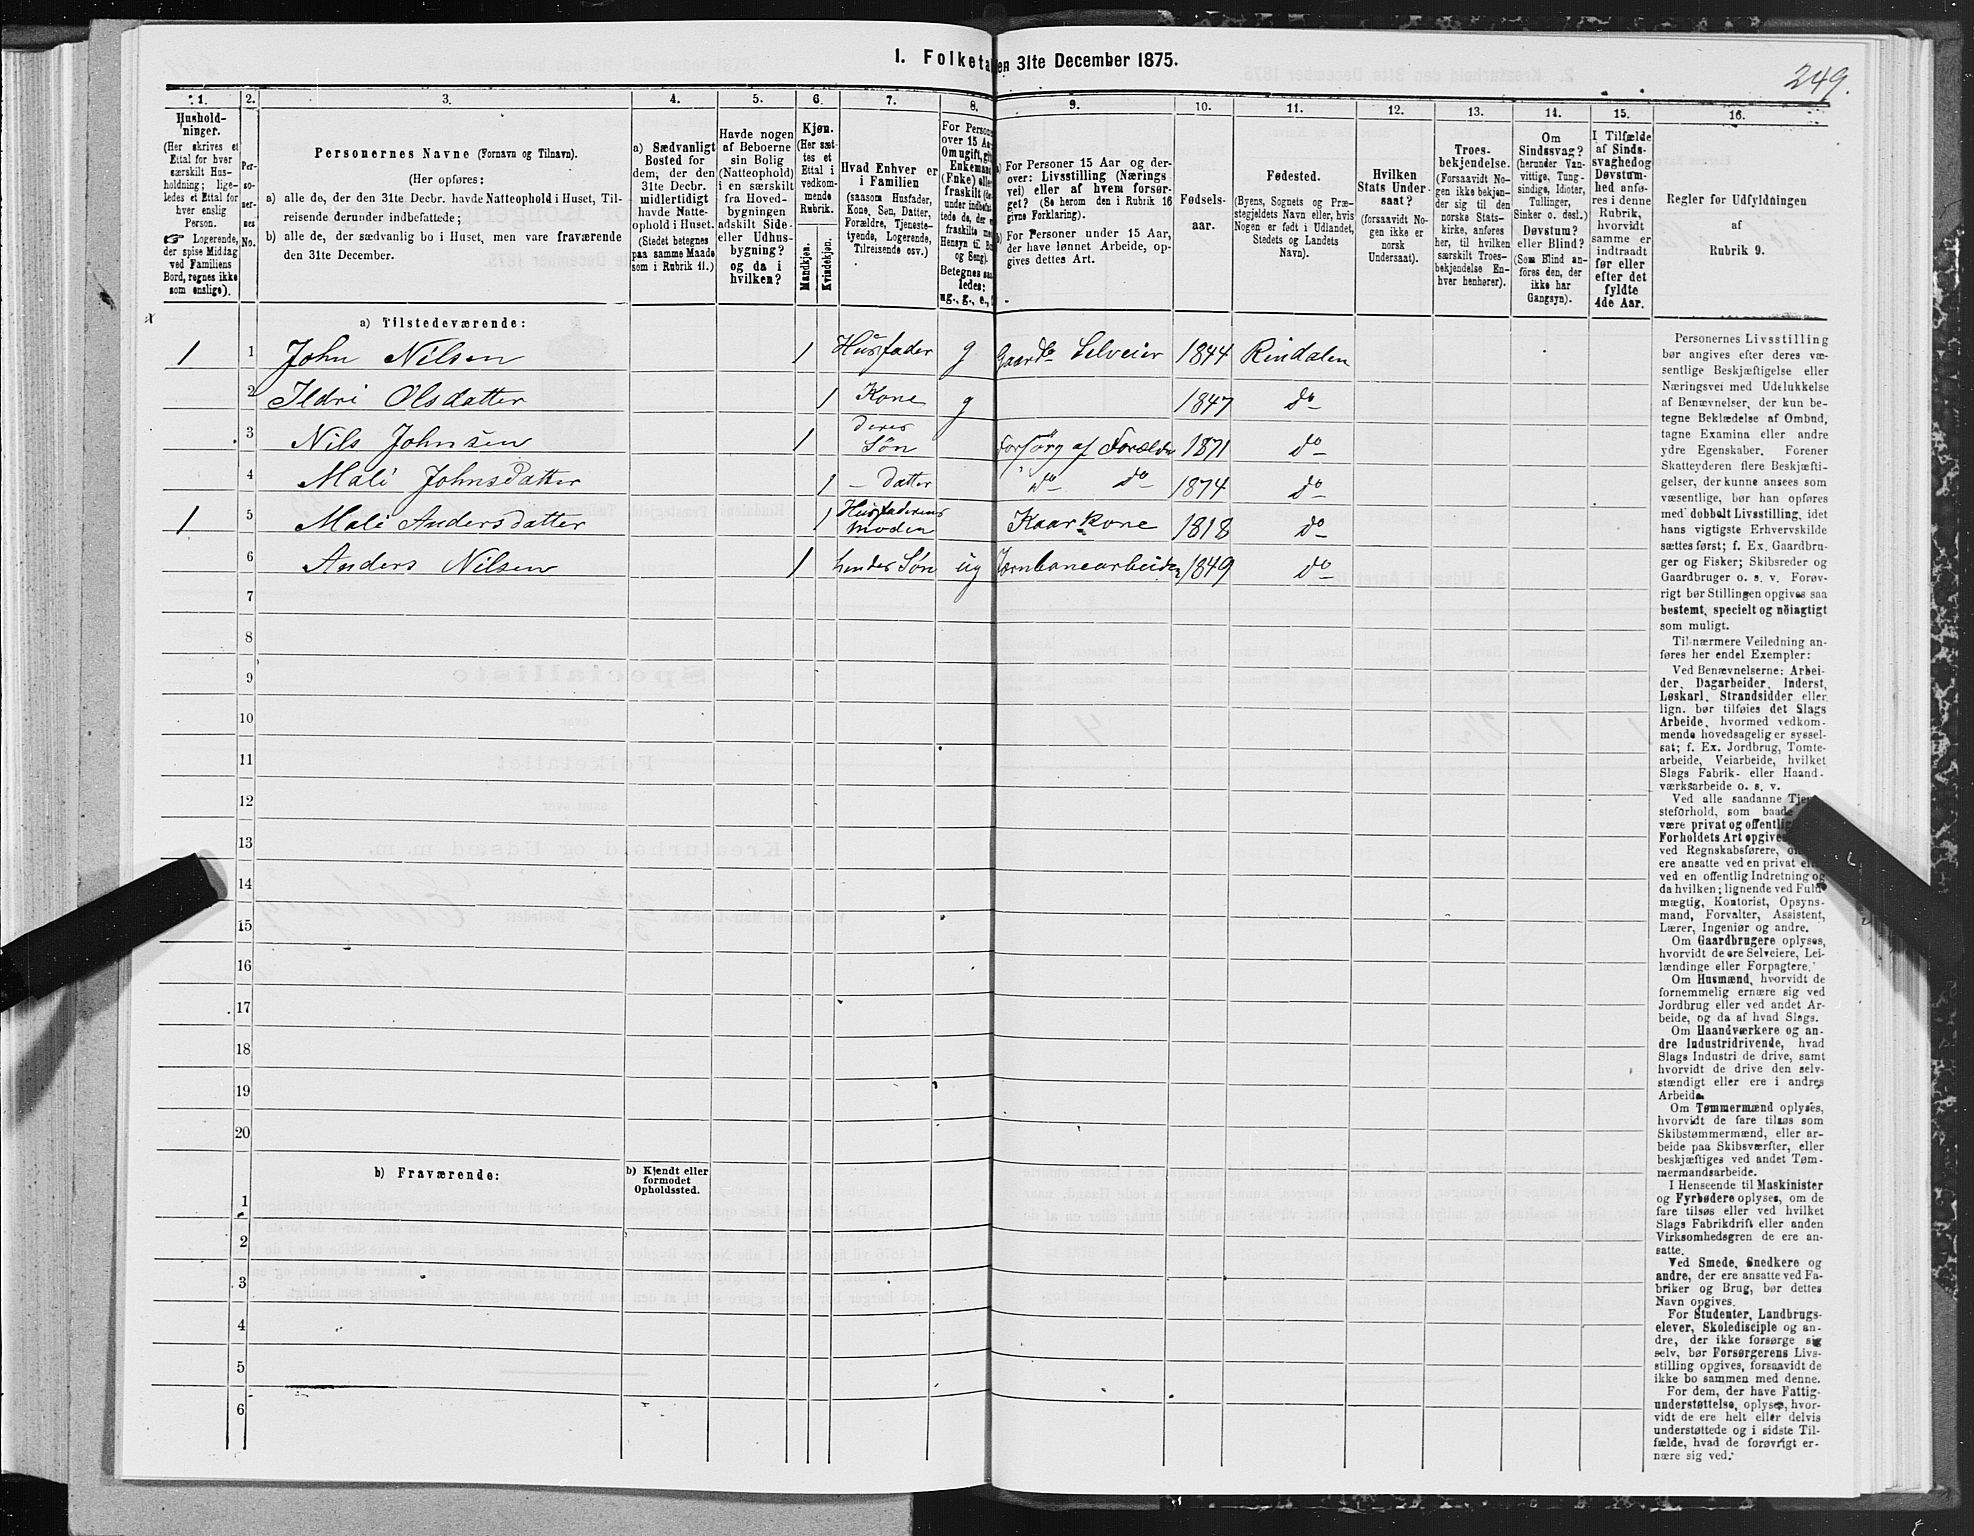 1. Folketa en 31te December 1875.
249.
1.
Hushold-
ninger.
(Her skrives et
Ettal for hver
særskilt Hus-
holdning; lige-
ledes et Ettal for
hver enslig
Person.
☞ Logerende,
der spise Middag
ved Familiens
Bord, regnes ikke
som enslige).
2.
Per-
so-
ner-
nes
No.
3.
Personernes Navne (Fornavn og Tilnavn).
(Her opføres:
a) alle de, der den 31te Decbr. havde Natteophold i Huset, Til-
reisende derunder indbefattede;
b) alle de, der sædvanlig bo i Huset, men vare fraværende
den 31te December.
4.
a) Sædvanligt
Bosted for
dem, der den
31te Decbr.
midlertidigt
havde Natte-
ophold i Huset.
(Stedet betegnes
paa samme Maade
som i Rubrik 11.)
5.
Havde nogen
af Beboerne
sin Bolig
(Natteophold)
i en særskilt
fra Hoved-
bygningen
adskilt Side-
eller Udhus-
bygning?
og da i
hvilken?
6.
Kjøn.
(Her sæt-
tes et
Ettal i
vedkom-
mende
Rubrik.
Mandkjøn.
Kvindekjøn.
7.
Hvad Enhver er
i Familien
(saasom Husfader,
Kone, Søn, Datter,
Forældre, Tjeneste-
tyende, Logerende,
Tilreisende osv.)
8.
For Person
over 15 Aa
Om ugift, gift
Enkemand
(Enke) elle
fraskilt
under indbefat
tede de, der e
fraskilte me
Hensyn til Bo
og Seng).
Betegnes saa
ledes:
ug., g., e.,
9.
a) For Personer 15 Aar og der-
over: Livsstilling (Nærings
vei) eller af hvem forsør-
get? (Se herom den i Rubrik 16
givne Forklaring).
b) For Personer under 15 Aar,
der have lønnet Arbeide, op-
gives dettes Art.
10.
Fødsels-
aar.
11.
Fødested.
(Byens, Sognets og Præ-
stegjeldets Navn eller, hvis
Nogen er født i Udlandet,
Stedets og Landets
Navn).
12.
Hvilken
Stats Under-
saat?
(forsaavidt No-
gen ikke er
norsk
Undersaat).
13.
Troes-
bekjendelse.
(Forsaavidt No-
gen ikke bekjen-
der sig til den
norske Stats-
kirke, anføres
her, til hvilken
særskilt Troes-
bekjendelse En-
hver henhører).
14.
Om
Sindssvag?
(herunder Van-
vittige, Tung-
sindige, Idioter,
Tullinger,
Sinker o. desl.)
Døvstum?
eller Blind?
(Som Blind an-
føres den, der
ikke har
Gangsyn).
15.
I Tilfælde
af Sinds-
svaghed og
Døvstum-
hed anfø-
res i denne
Rubrik,
hvorvidt
samme er
indtraadt
før eller
efter det
fyldte
4de Aar.
16.
Regler for Udfyldningen
af
Rubrik 9.
a) Tilstedeværende:
1 1 John Nilsen 1 Husfader g Gaardbr Selveier 1844 Rindalen
2 Ildri Olsdatter 1 Kone g 1847 do
3 Nils Johnsen 1 deres Søn Forsørg af Forældre 1871 do
4 Mali Johnsdatter 1 — datter do do 1874 do
1 5 Mali Andersdatter 1 Husfaderens moder Kaarkone 1818 do
6 Anders Nilsen 1 hendes Søn ug Jernbanearbeider 1849 do
7
8
9
10
11
12
13
14
15
16
17
18
19
20
b) Fraværende:
b) Kjendt eller
formodet
Opholdssted.
1
2
3
4
5
6
Personernes Livsstilling
bør angives efter deres væ-
sentlige Beskjæftigelse eller
Næringsvei med Udelukkelse
af Benævnelser, der kun be-
tegne Beklædelse af Ombud,
tagne Examina eller andre
ydre Egenskaber. Forener
Skatteyderen flere Beskjæfti-
gelser, der kunne ansees som
væsentlige, bør han opføres
med dobbelt Livsstilling, idet
hans vigtigste Erhvervskilde
sættes først; f. Ex. Gaardbru-
ger og Fisker; Skibsreder og
Gaardbruger o. s. v. Forøv-
rigt bør Stillingen opgives saa
bestemt, specielt og nøiagtigt
som muligt.
Til nærmere Veiledning an-
føres her endel Exempler:
Ved Benævnelserne: Arbei-
der, Dagarbeider, Inderst,
Løskarl, Strandsidder eller
lign. bør tilføies det Slags
Arbeide, hvormed vedkom-
mende hovedsagelig er syssel-
sat; f. Ex. Jordbrug, Tomte-
arbeide, Veiarbeide, hvilket
Slags Fabrik- eller Haand-
værksarbeide o. s. v.
Ved alle saadanne Tjen
steforhold, som baade
være privat og offentlig
Forholdets Art opgives
ved Regnskabsførere,
ere ansatte ved en privat el
ved en offentlig Indretning og
da hvilken; lignende ved Fuld
mægtig, Kontorist, Opsyns-
mand, Forvalter, Assistent,
Lærer, Ingeniør og andre.
Om Gaardbrugere oplyses,
hvorvidt de ere Selveiere, Lei-
lændinge eller Forpagtere.
Om Husmænd, hvorvidt de
fornemmelig ernære sig ved
Jordbrug eller ved andet Ar-
beide, og da af hvad Slags.
Om Haandværkere og an-
dre Industridrivende, hvad
Slags Industri de drive, samt
hvorvidt de drive den selv-
stændigt eller ere i andres
Arbeide.
Om Tømmermænd oplyses,
hvorvidt de fare tilsøs som
Skibstømmermænd, eller ar-
beide paa Skibsværfter, eller
beskjæftiges ved andet Tøm-
mermandsarbeide.
I Henseende til Maskinister
og Fyrbødere oplyses, om de
fare tilsøs eller ved hvilket
Slags Fabrikdrift eller anden
Virksomhedsgren de ere an-
satte.
Ved Smede, Snedkere og
andre, der ere ansatte ved Fa-
briker og Brug, bør dettes
Navn opgives.
For Studenter, Landbrugs-
elever, Skoledisciple og an-
dre, der ikke forsørge sig
selv, bør Forsørgerens Livs-
stilling opgives, forsaavidt de
ikke bo sammen med denne.
For dem, der have Fattig-
understøttelse, oplyses, hvor-
vidt de ere helt eller delvis
understøttede og i sidste Til-
fælde, hvad de forøvrigt er-
nære sig ved.